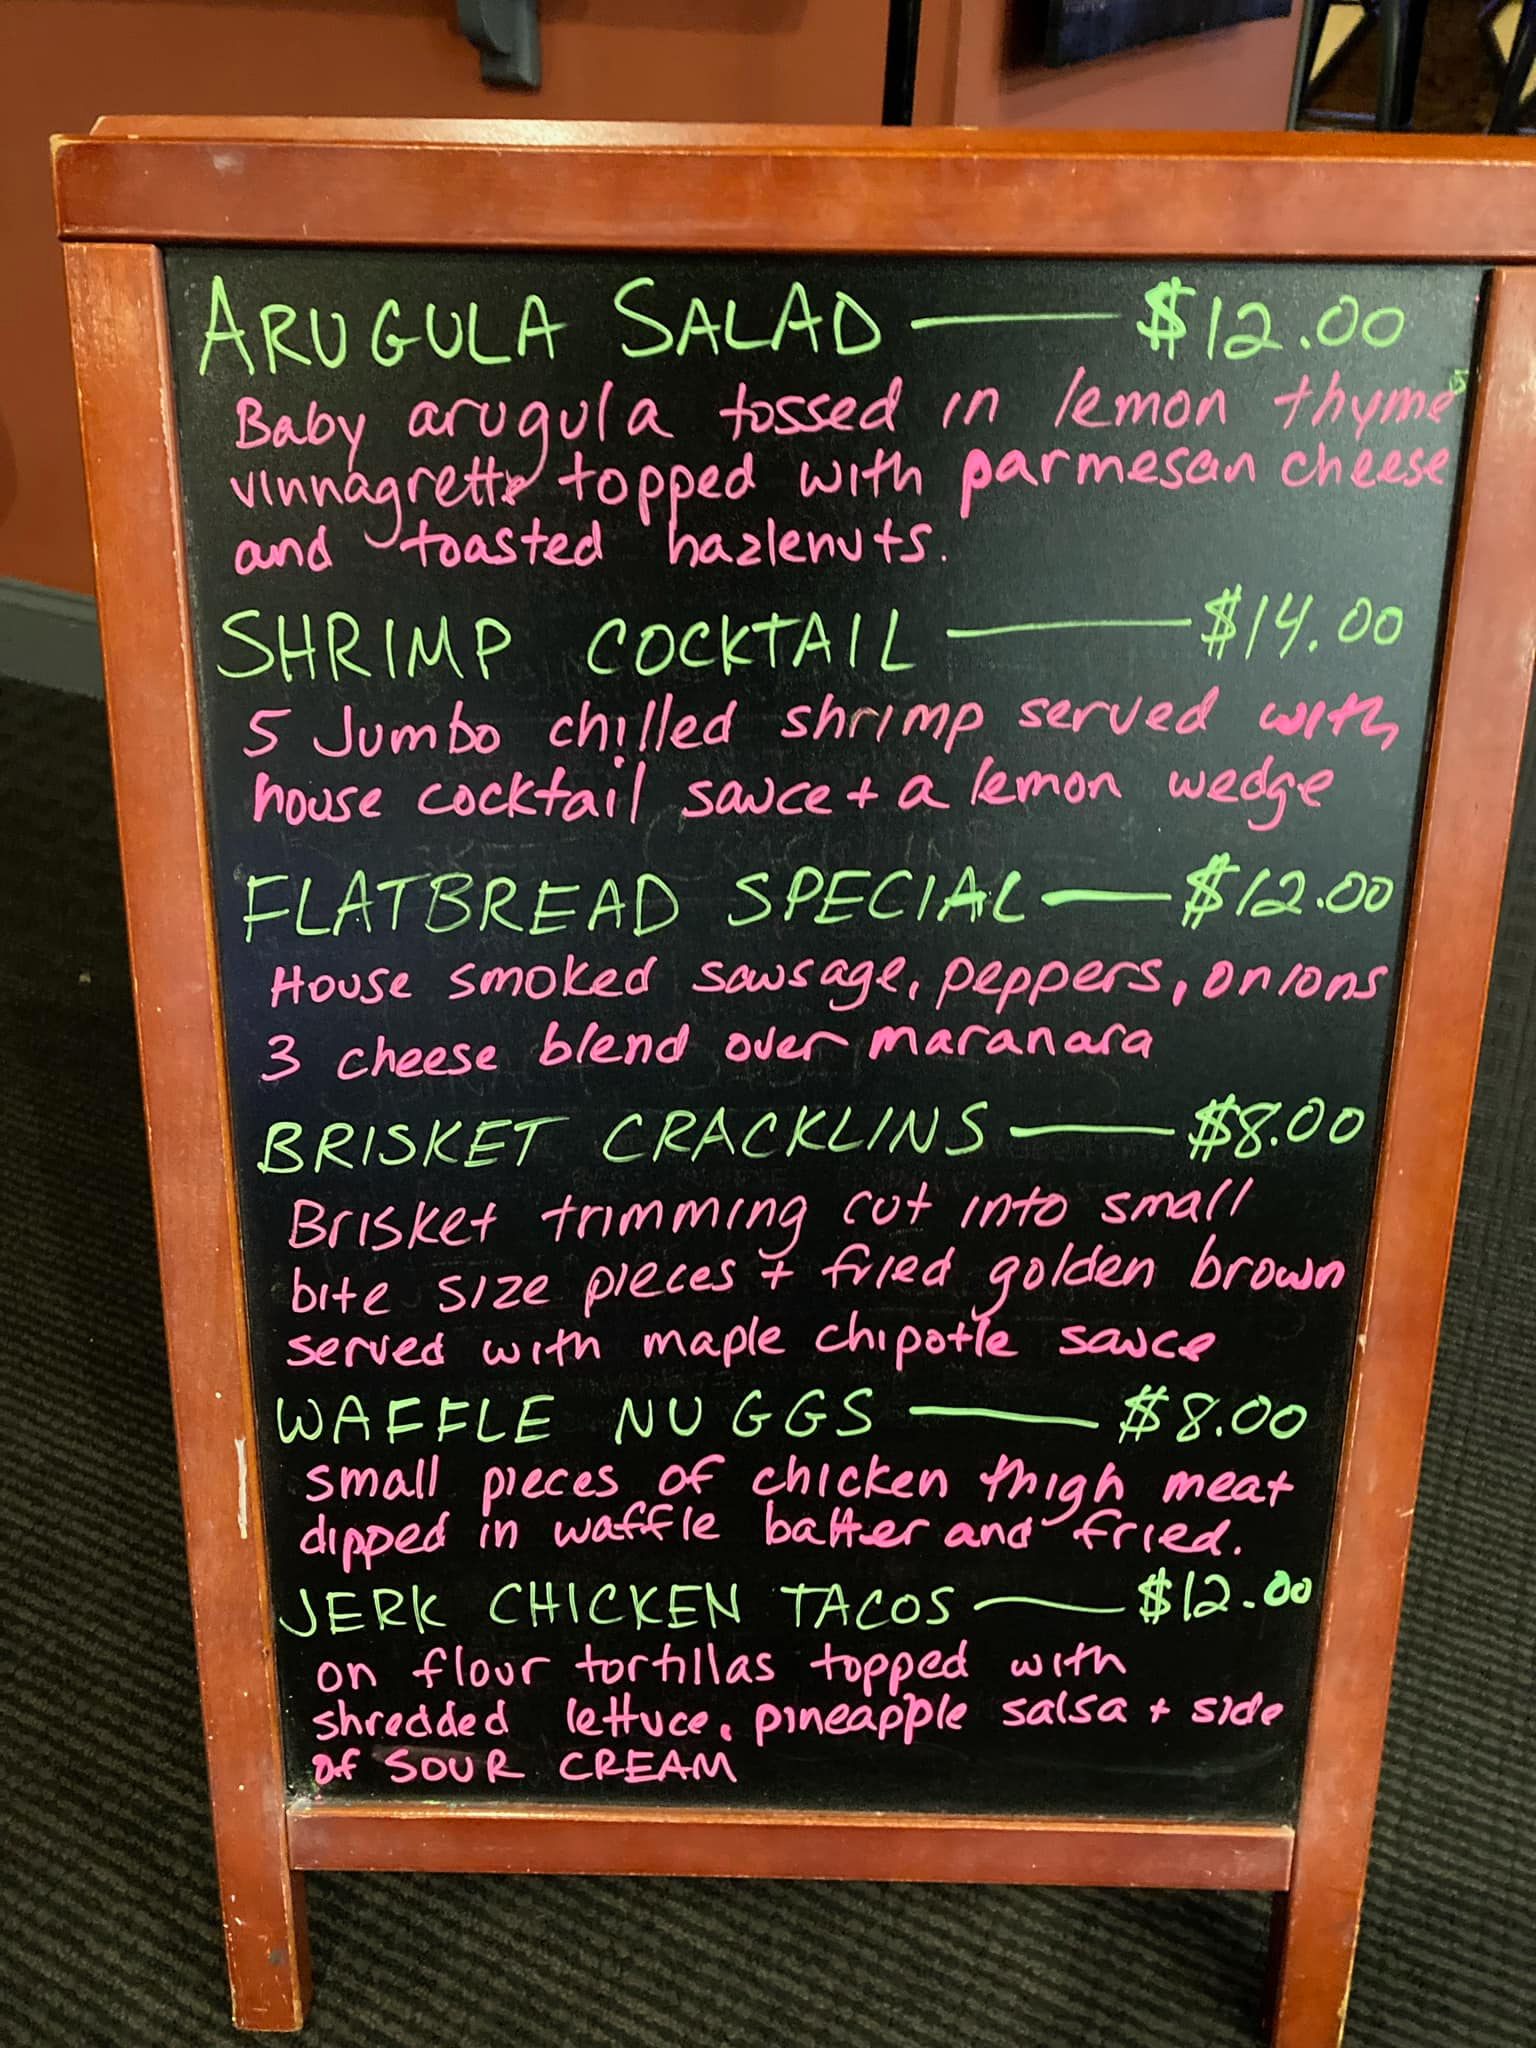 ARUGULA SALAD — $12.00
Baby arugula tossed in lemon thyme
vinnagrette topped with parmesan cheese
and toasted hazlenuts.
SHRIMP COCKTAIL — $14.00
5 Jumbo chilled shrimp served with
house cocktail sauce + a lemon wedge
FLATBREAD SPECIAL — $12.00
House smoked sausage, peppers, onions
3 cheese blend over maranara
BRISKET CRACKLINS — $8.00
Brisket trimming cut into small
bite size pieces + fried golden brown
served with maple chipotle sauce
WAFFLE NUGGS — $8.00
small pieces of chicken thigh meat
dipped in waffle batter and fried.
JERK CHICKEN TACOS — $12.00
on flour tortillas topped with
shredded lettuce, pineapple salsa + side
of SOUR CREAM